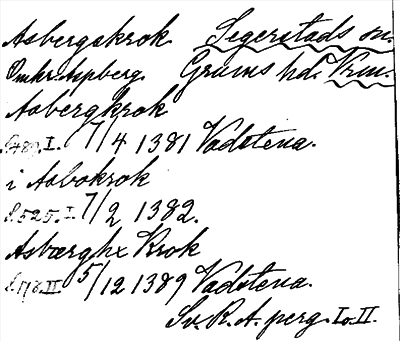 Asbergskrok Segerstads sn.
Omkr. Aspberg. Grums hd. Vrm.
Asbergkrok
I. 7/4 1381 Vadstena.
i Asbokrok
s. 525. I. 7/2 1382.
Asbærghx Krok
II. 5/12 1389 Vadstena.
Sv. R. A. perg. I o. II.